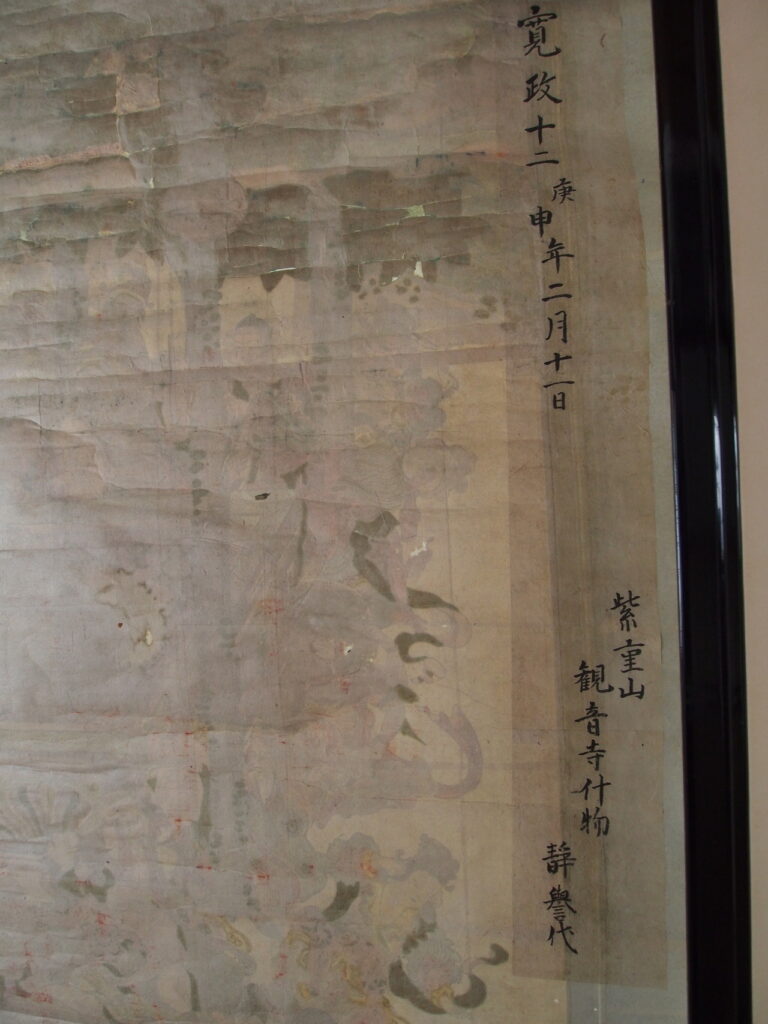 寛政十二庚申年二月十一日
紫重山
観音寺什物
靜譽代